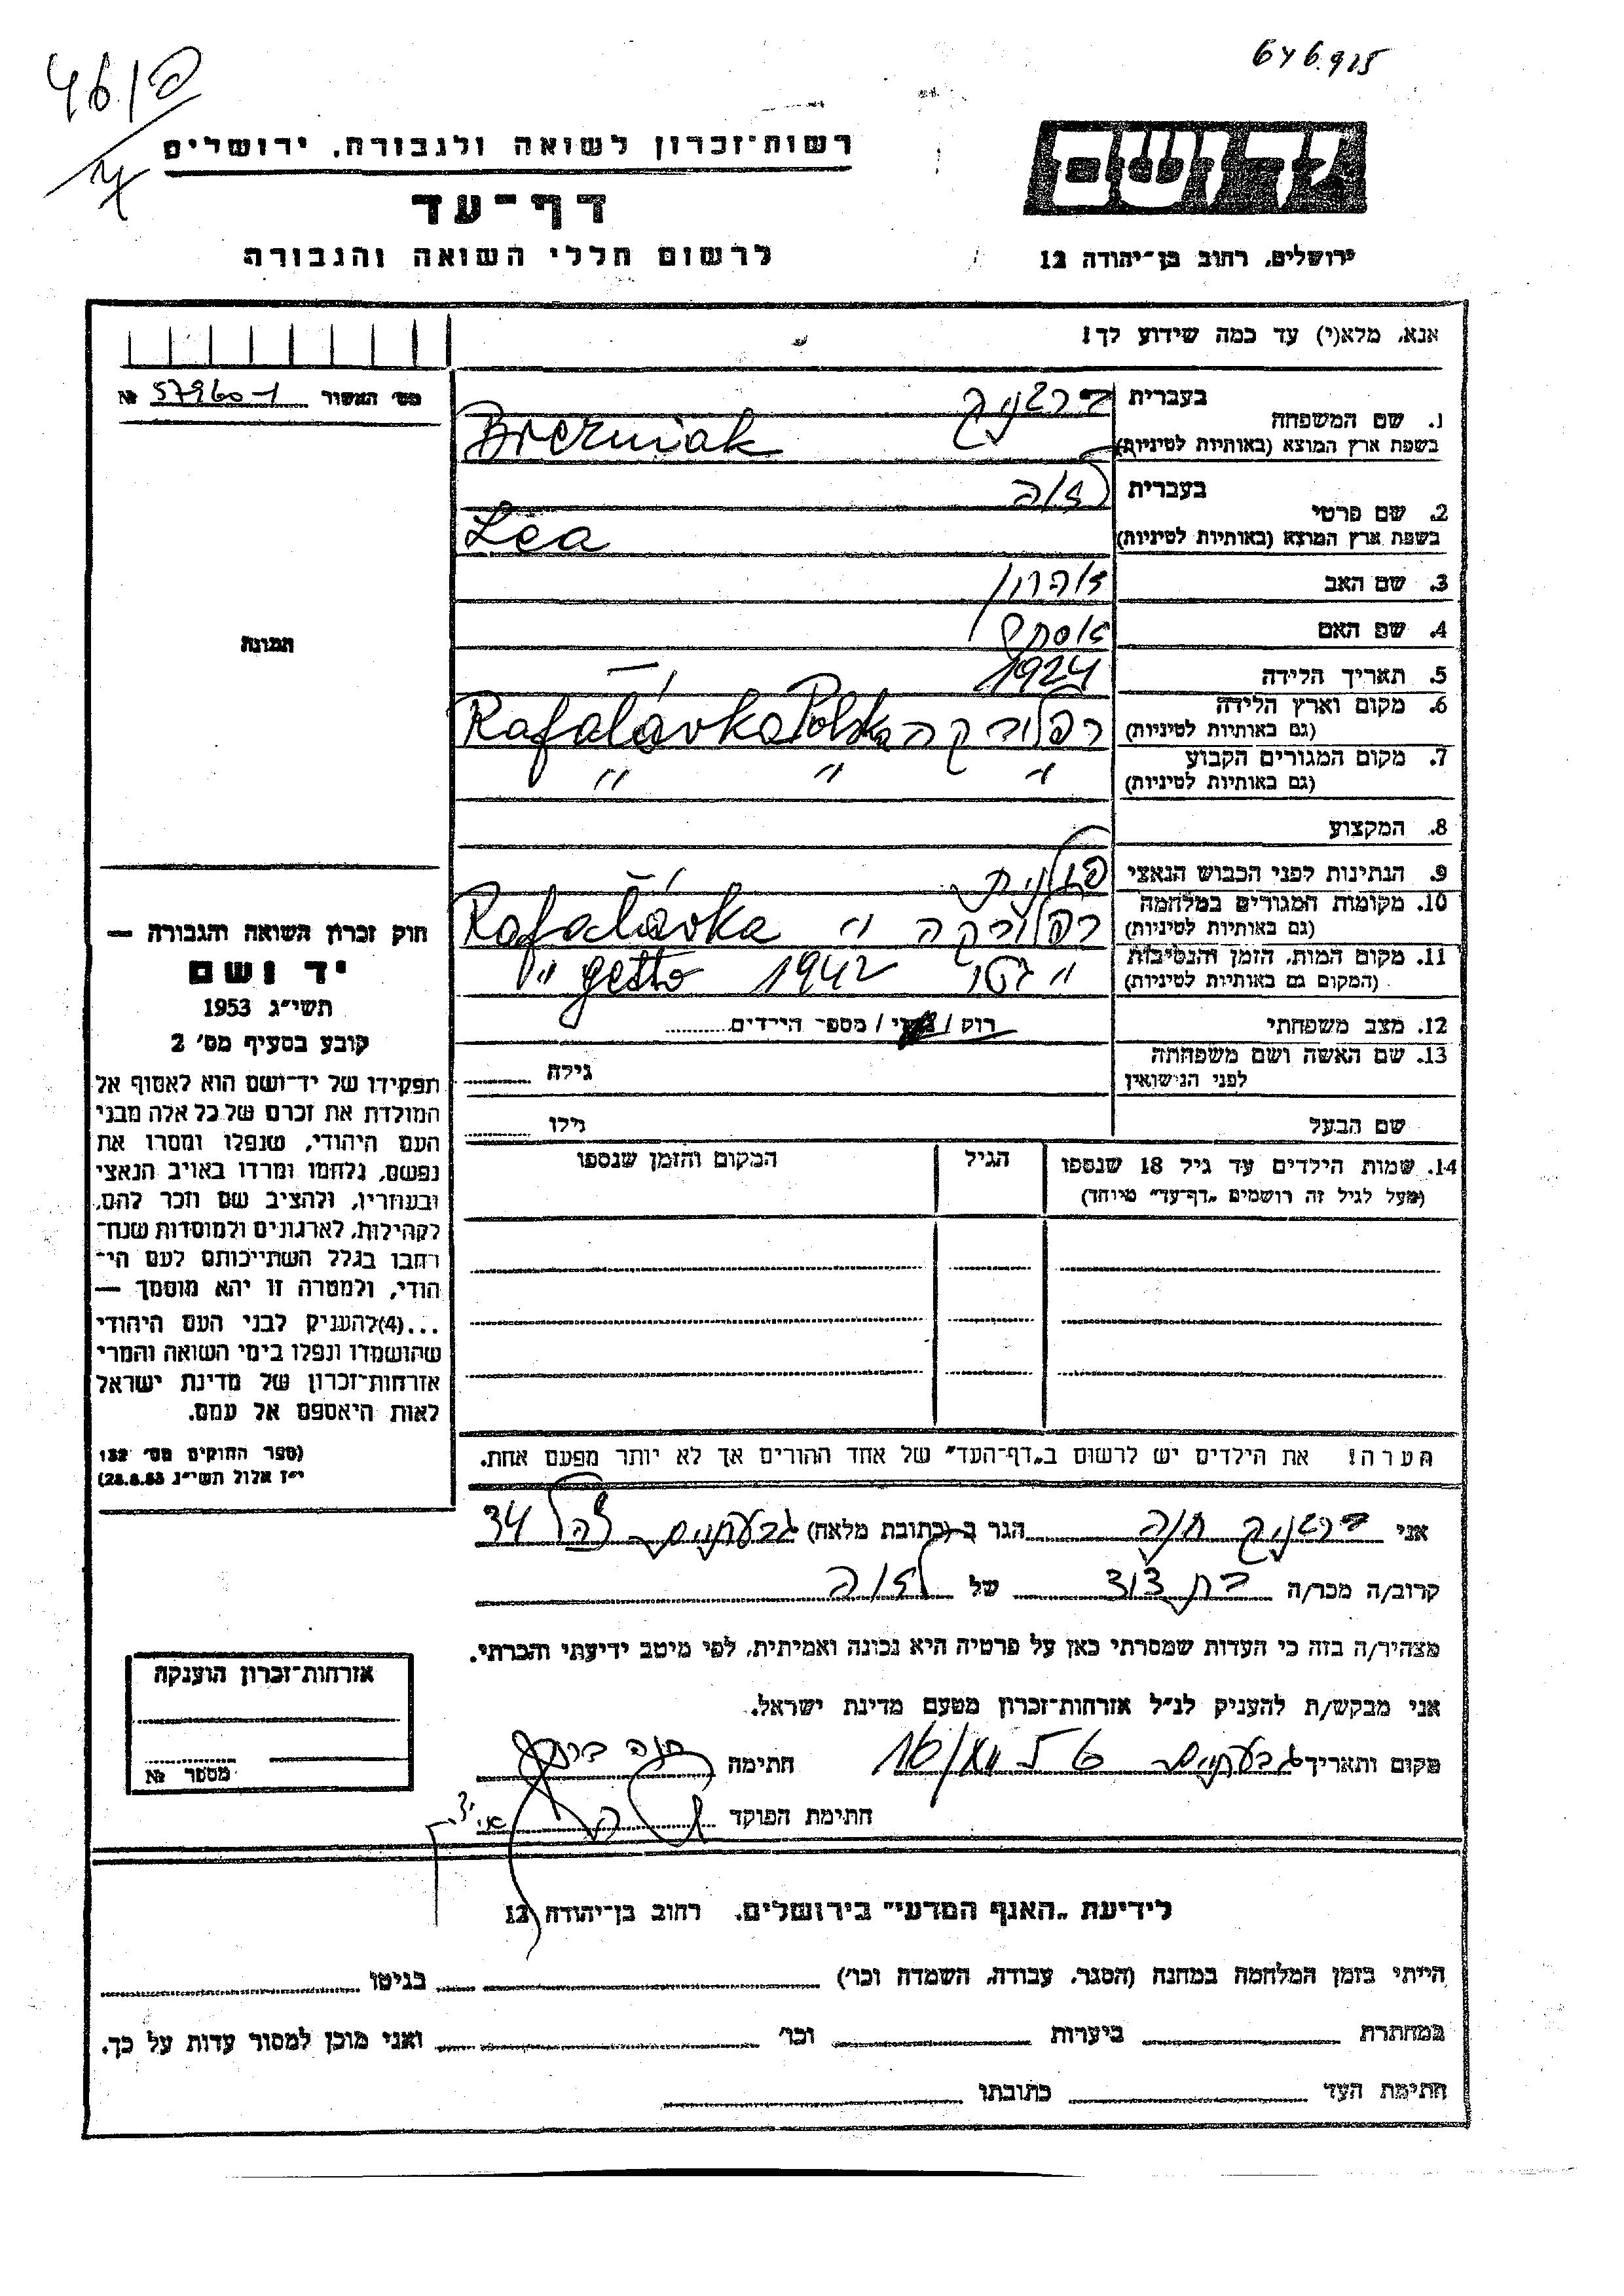 646.925
רשות־זכרון לשואה ולגבורה, ירושלים
דף־עד
לרשום חללי השואה והגבורה
ידושם
ירושלים, רחוב בן־יהודה 12
אנא, מלא(י) עד כמה שידוע לך!
מס׳ האשור 57960-1 №
1. שם המשפחה
בעברית ברזניק
בשפת ארץ המוצא (באותיות לטיניות) Brezniak
2. שם פרטי
בעברית לאה
בשפת ארץ המוצא (באותיות לטיניות) Lea
3. שם האב אהרון
4. שם האם אסתר
5. תאריך הלידה 1924
6. מקום וארץ הלידה
(גם באותיות לטיניות) רפלובקה Rafalóvka Polska
7. מקום המגורים הקבוע
(גם באותיות לטיניות) " " "
8. המקצוע
9. הנתינות לפני הכבוש הנאצי פולנית
10. מקומות המגורים במלחמה
(גם באותיות לטיניות) רפלובקה " Rafalóvka
11. מקום המות, הזמן והנסיבות
(המקום גם באותיות לטיניות) " גטו 1942 getto "
12. מצב משפחתי רוק / נשוי / מספר הילדים
13. שם האשה ושם משפחתה
לפני הנישואין
גילה
שם הבעל
גילו
14. שמות הילדים עד גיל 18 שנספו
(מעל לגיל זה רושמים „דף־עד” מיוחד)
הגיל
המקום והזמן שנספו
הערה! את הילדים יש לרשום ב„דף־העד” של אחד ההורים אך לא יותר מפעם אחת.
תמונה
חוק זכרון השואה והגבורה —
יד ושם
תשי״ג 1953
קובע בסעיף מס׳ 2
תפקידו של יד־ושם הוא לאסוף אל
המולדת את זכרם של כל אלה מבני
העם היהודי, שנפלו ומסרו את
נפשם, נלחמו ומרדו באויב הנאצי
ובעוזריו, ולהציב שם וזכר להם,
לקהילות, לארגונים ולמוסדות שנח־
רבו בגלל השתייכותם לעם הי־
הודי, ולמטרה זו יהא מוסמך —
...(4)להעניק לבני העם היהודי
שהושמדו ונפלו בימי השואה והמרי
אזרחות־זכרון של מדינת ישראל
לאות היאספם אל עמם.
(ספר החוקים מס׳ 132
י״ז אלול תשי״ג 28.8.53)
אני ברזניק חנה הגר ב (כתובת מלאה) גבעתיים צהל 34
קרוב/ה מכר/ה בת דוד של לאה
מצהיר/ה בזה כי העדות שמסרתי כאן על פרטיה היא נכונה ואמיתית, לפי מיטב ידיעתי והכרתי.
אני מבקש/ת להעניק לנ״ל אזרחות־זכרון מטעם מדינת ישראל.
מקום ותאריך גבעתיים חתימה
חתימת הפוקד
אזרחות־זכרון הוענקה
מספר №
לידיעת „האגף המדעי” בירושלים, רחוב בן־יהודה 12
הייתי בזמן המלחמה במחנה (הסגר, עבודה, השמדה וכו׳) בגיטו
במחתרת ביערות וכו׳ ואני מוכן למסור עדות על כך.
חתימת העד כתובתו